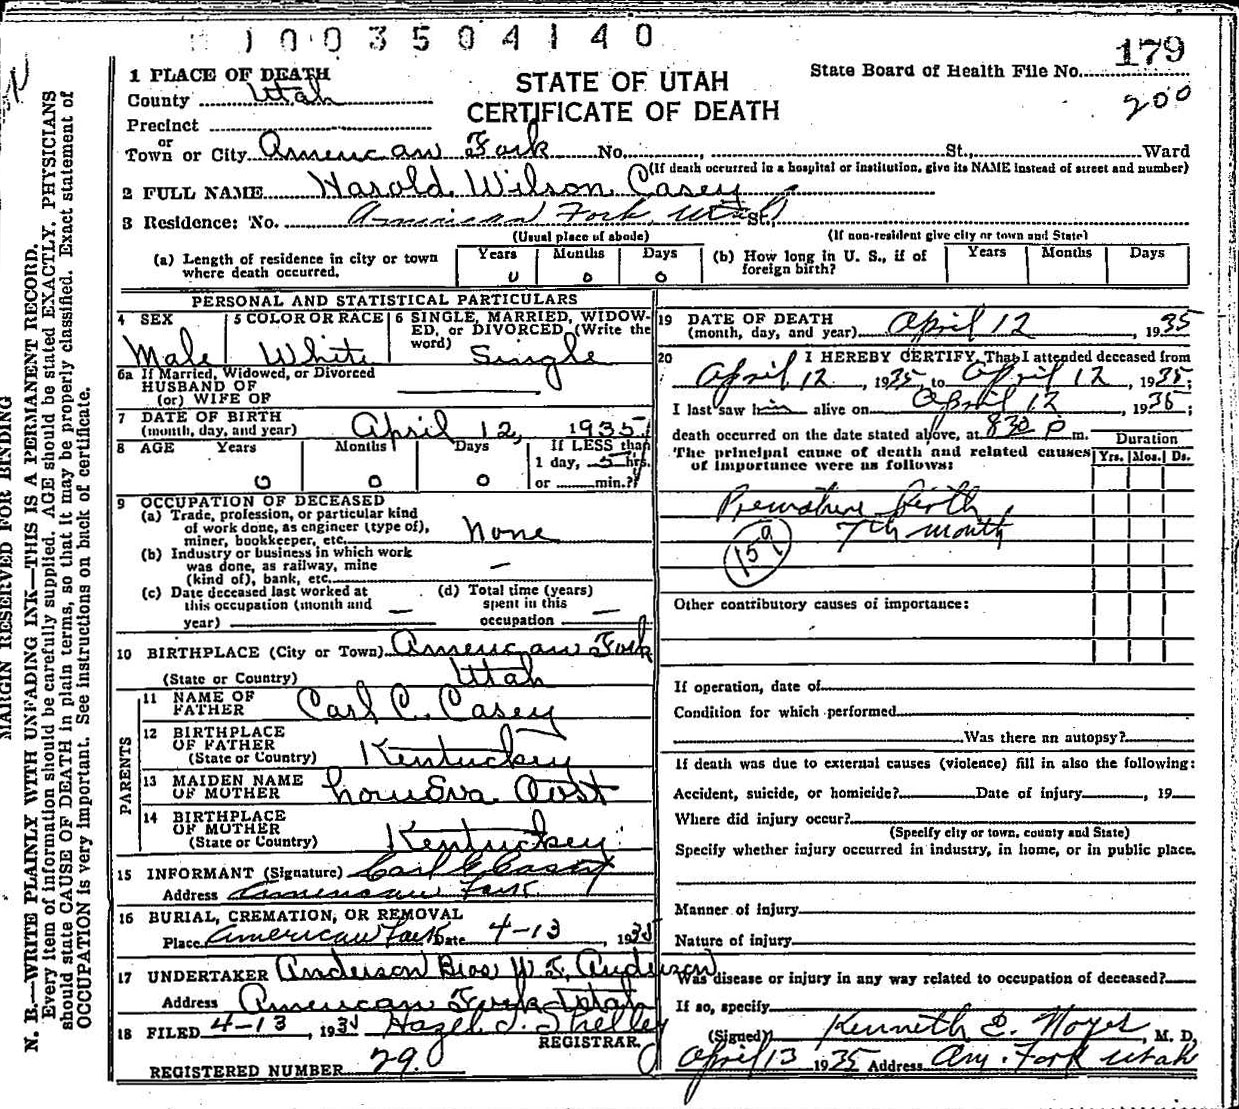 1003504140
179
200
MARGIN RESERVED FOR BINDING
N. B.—WRITE PLAINLY WITH UNFADING INK—THIS IS A PERMANENT RECORD.
Every item of information should be carefully supplied. AGE should be stated EXACTLY. PHYSICIANS
should state CAUSE OF DEATH in plain terms, so that it may be properly classified. Exact statement of
OCCUPATION is very important. See instructions on back of certificate.
STATE OF UTAH
CERTIFICATE OF DEATH
State Board of Health File No.
1 PLACE OF DEATH
County Utah
Precinct
or
Town or City American Fork No. , St., Ward
(If death occurred in a hospital or institution, give its NAME instead of street and number)
2 FULL NAME Harold Wilson Casey
3 Residence: No. American Fork, Utah St.,
(Usual place of abode) (If non-resident give city or town and State)
(a) Length of residence in city or town where death occurred. Years 0 Months 0 Days 0
(b) How long in U. S., if of foreign birth? Years Months Days
PERSONAL AND STATISTICAL PARTICULARS
4 SEX Male
5 COLOR OR RACE White
6 SINGLE, MARRIED, WIDOWED, or DIVORCED (Write the word) Single
6a If Married, Widowed, or Divorced
HUSBAND OF
(or) WIFE OF
7 DATE OF BIRTH
(month, day, and year) April 12, 1935
8 AGE Years 0 Months 0 Days 0 If LESS than
1 day, 5 hrs.
or min.?
9 OCCUPATION OF DECEASED
(a) Trade, profession, or particular kind
of work done, as engineer (type of),
miner, bookkeeper, etc. None
(b) Industry or business in which work
was done, as railway, mine
(kind of), bank, etc. —
(c) Date deceased last worked at
this occupation (month and
year) —
(d) Total time (years)
spent in this
occupation —
10 BIRTHPLACE (City or Town) American Fork
(State or Country) Utah
PARENTS
11 NAME OF
FATHER Carl C. Casey
12 BIRTHPLACE
OF FATHER
(State or Country) Kentucky
13 MAIDEN NAME
OF MOTHER LouEva
14 BIRTHPLACE
OF MOTHER
(State or Country) Kentucky
15 INFORMANT (Signature) Carl C Casey
Address American Fork
16 BURIAL, CREMATION, OR REMOVAL
Place American Fork Date 4-13, 1935
17 UNDERTAKER Anderson Bros W. F. Anderson
Address American Fork Utah
18 FILED 4-13, 1935 Hazel S. Shelley
REGISTRAR.
REGISTERED NUMBER 29
19 DATE OF DEATH
(month, day, and year) April 12, 1935
20 I HEREBY CERTIFY, That I attended deceased from
April 12, 1935, to April 12, 1935;
I last saw him alive on April 12, 1935;
death occurred on the date stated above, at 8:30 P m.
The principal cause of death and related causes
of importance were as follows:
Duration
Yrs. Mos. Ds.
Premature Birth
7th month
159
Other contributory causes of importance:
If operation, date of
Condition for which performed
Was there an autopsy?
If death was due to external causes (violence) fill in also the following:
Accident, suicide, or homicide? Date of injury , 19
Where did injury occur?
(Specify city or town, county and State)
Specify whether injury occurred in industry, in home, or in public place.
Manner of injury
Nature of injury
Was disease or injury in any way related to occupation of deceased?
If so, specify
(Signed) Kenneth E. Noyes, M. D.
April 13 1935 Address Am. Fork Utah